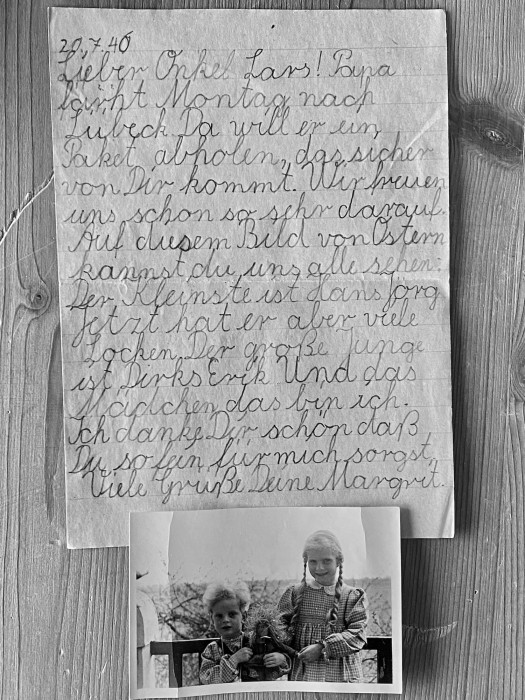 20.7.46
Lieber Onkel Lars! Papa
fährt Montag nach
Lübeck. Da will er ein
Paket abholen, das sicher
von Dir kommt. Wir freuen
uns schon so sehr darauf.
Auf diesem Bild von Ostern
kannst du uns alle sehen:
Der Kleinste ist Hans Jörg
Jetzt hat er aber viele
Locken. Der große Junge
ist Dirks Erik. Und das
Mädchen, das bin ich.
Ich danke Dir schön daß
Du so fein für mich sorgst,
Viele Grüße Deine Margrit.